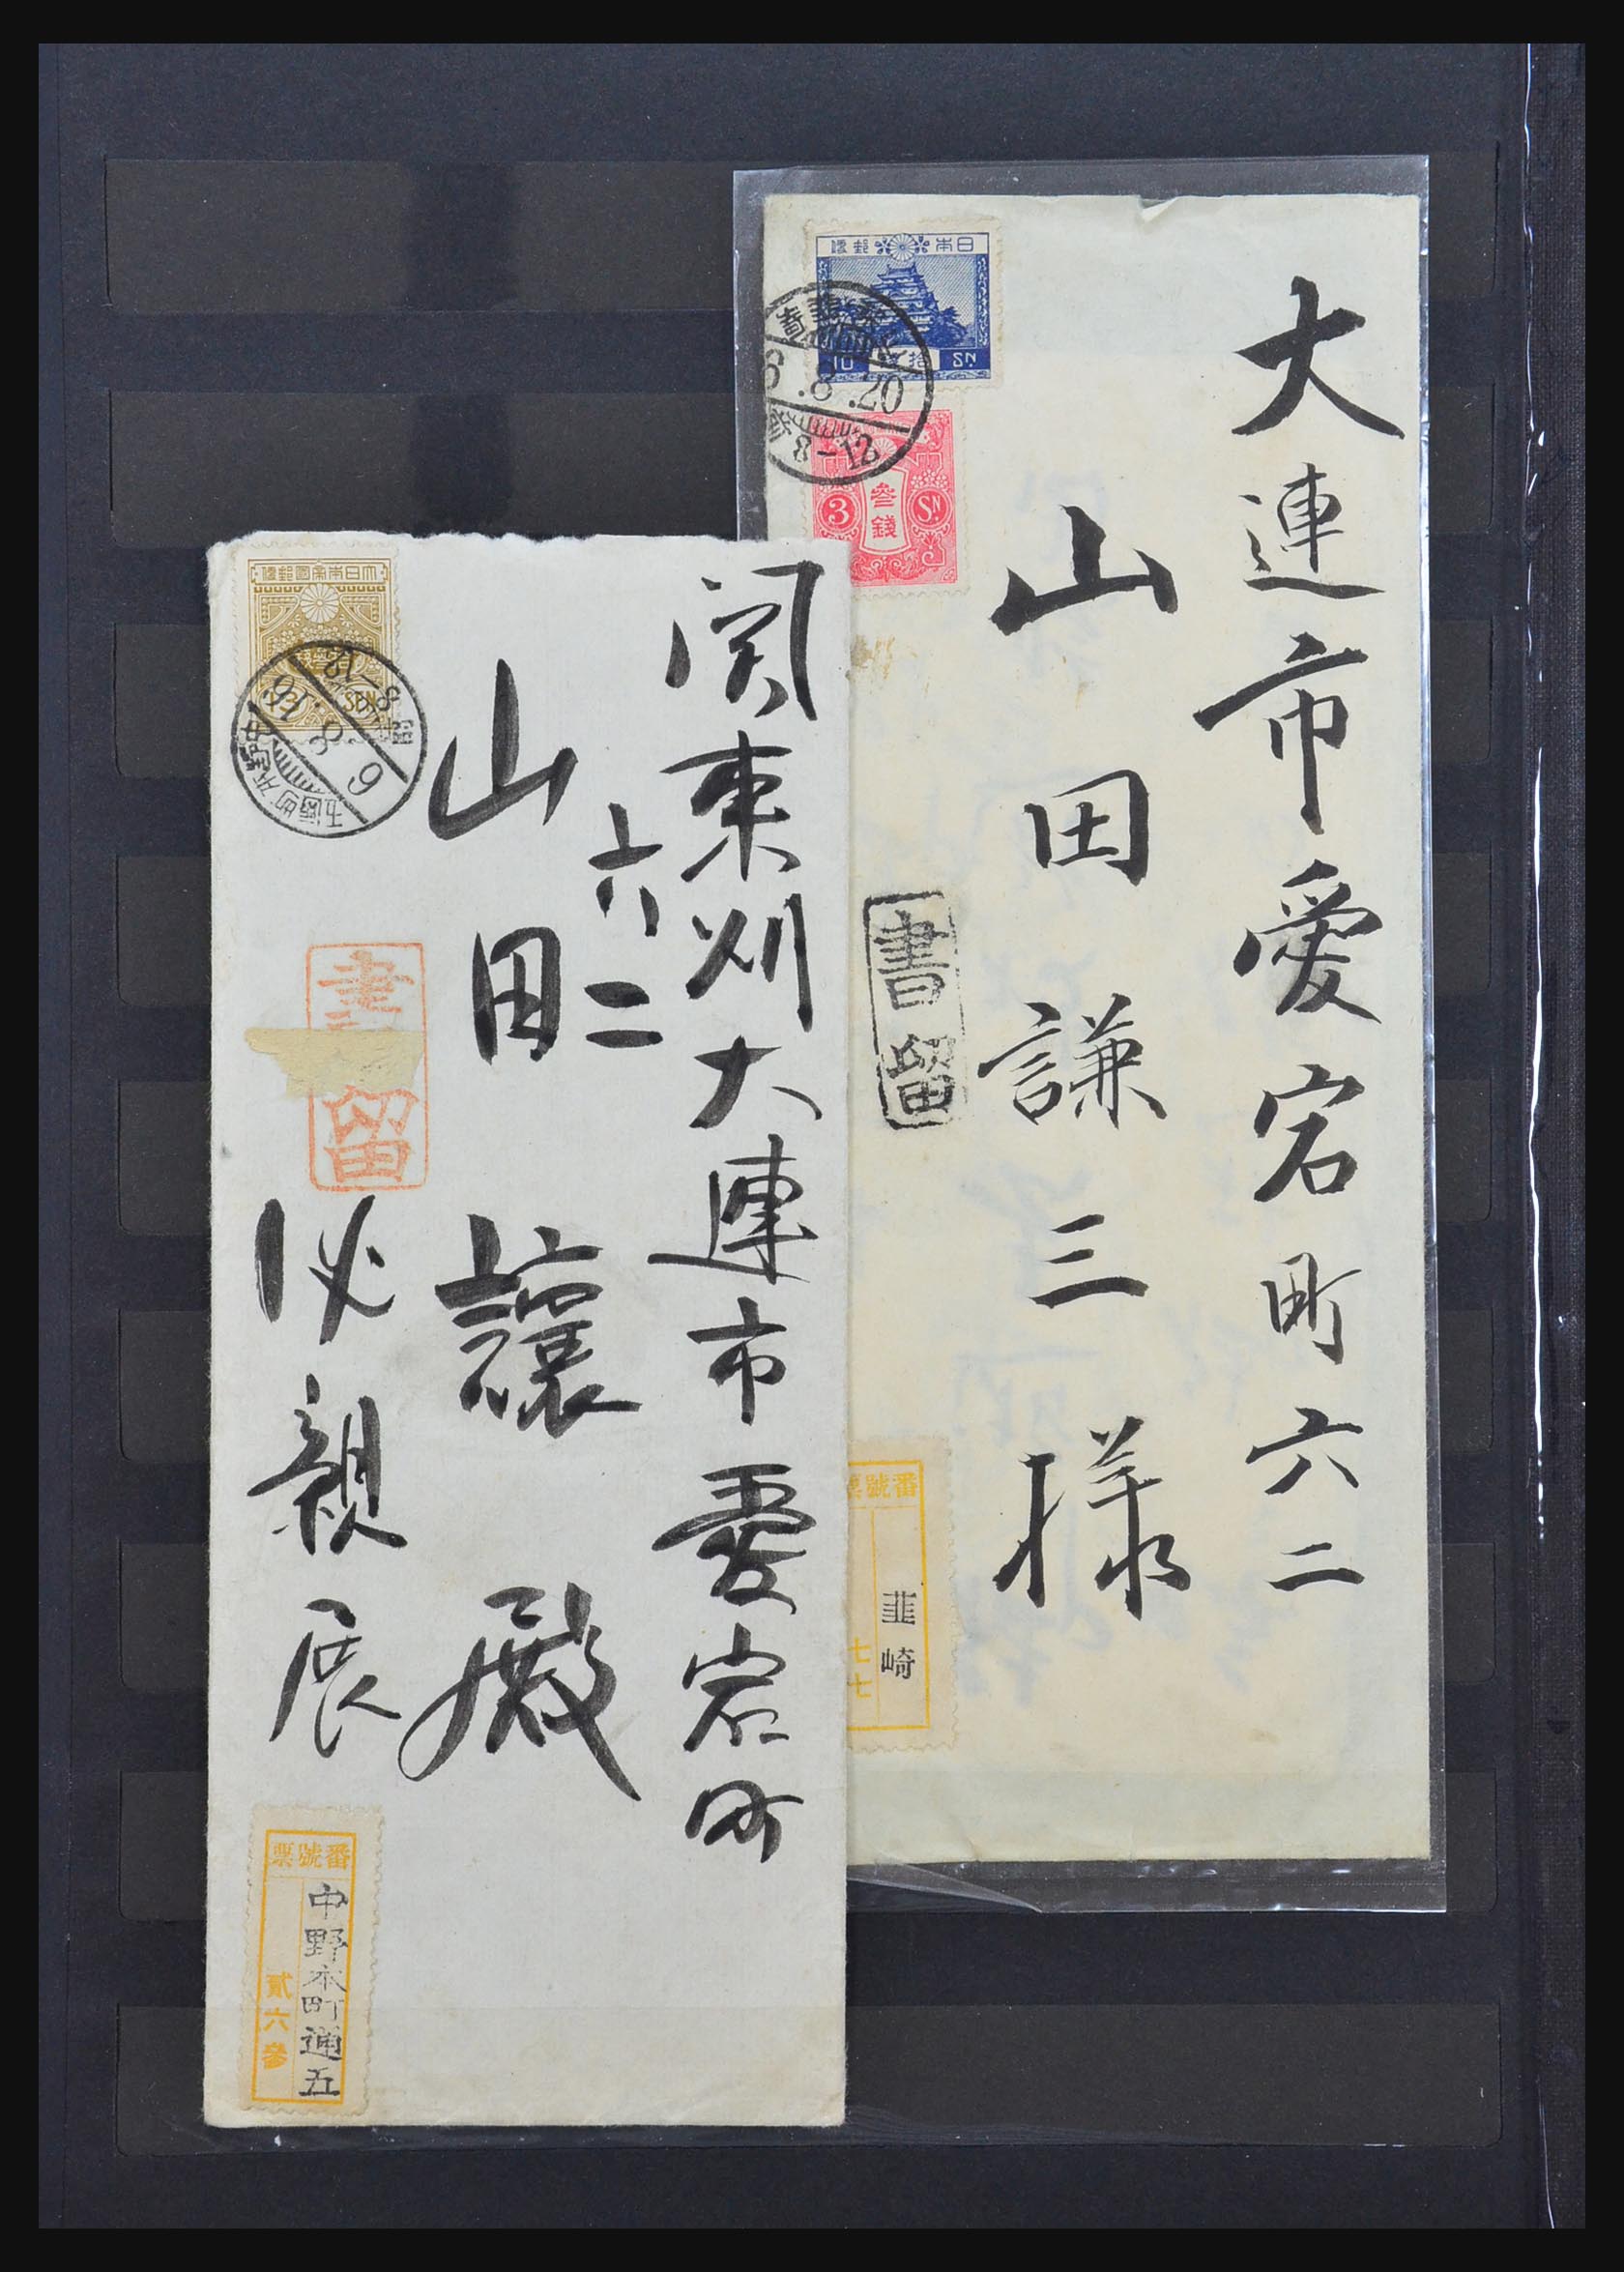 大連市愛宕町六二
山田謙三様
書留
日本郵便
10 拾銭 SN
6.8.20
8-12
3 参銭 SN
番號票
韮崎
七七
関東州大連市愛宕町
六二
山田讓殿
必親展
書留
大日本帝國郵便
SEN
6.8.16
8-12
番號票
中野本町通五
貳六參